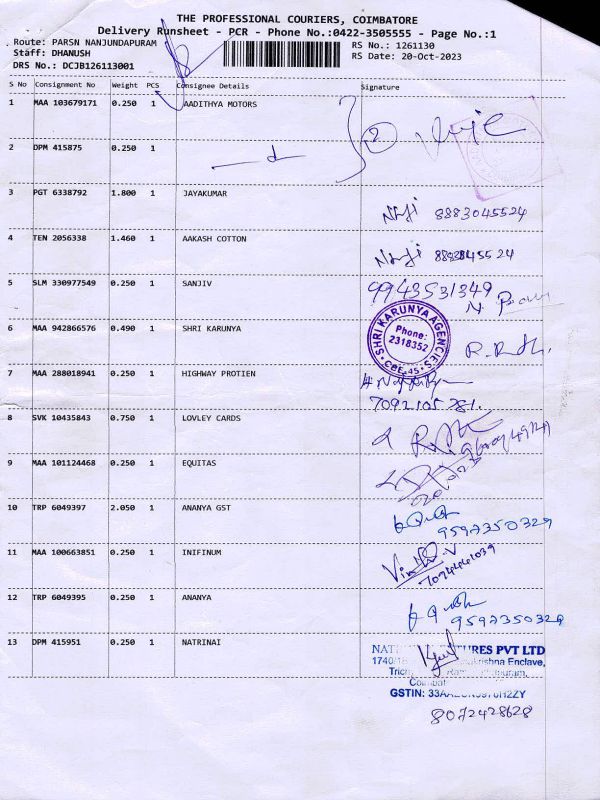 THE PROFESSIONAL COURIERS, COIMBATORE
Delivery Runsheet - PCR - Phone No.:0422-3505555 - Page No.:1
Route: PARSN NANJUNDAPURAM RS No.: 1261130
Staff: DHANUSH RS Date: 20-Oct-2023
DRS No.: DCJB126113001
S No Consignment No Weight PCS Consignee Details Signature
1 MAA 103679171 0.250 1 AADITHYA MOTORS
2 DPM 415875 0.250 1
3 PGT 6338792 1.800 1 JAYAKUMAR 8883045524
4 TEN 2056338 1.460 1 AAKASH COTTON
5 SLM 330977549 0.250 1 SANJIV 9943531349
6 MAA 942866576 0.490 1 SHRI KARUNYA SHRI KARUNYA AGENCIES Phone: 2318352 CBE-45.
7 MAA 288018941 0.250 1 HIGHWAY PROTIEN
7092105781.
8 SVK 10435843 0.750 1 LOVLEY CARDS
9 MAA 101124468 0.250 1 EQUITAS
10 TRP 6049397 2.050 1 ANANYA GST
9597350329
11 MAA 100663851 0.250 1 INIFINUM
12 TRP 6049395 0.250 1 ANANYA
9597350329
13 DPM 415951 0.250 1 NATRINAI PVT LTD
Enclave,
GSTIN:
8072428628